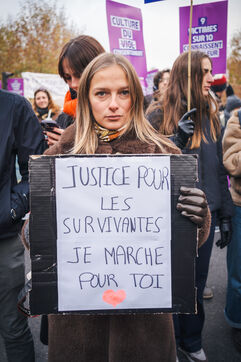 CULTURE
DU
VIOL
9
VICTIMES
SUR 10
CONNAISSENT
JUSTICE POUR
LES
SURVIVANTES
JE MARCHE
POUR TOI